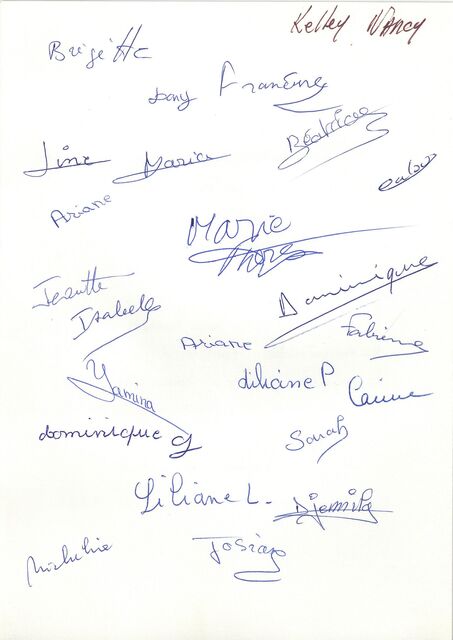 Kelley Nancy
Brigitte
Dany Francine
Béatrice
Line Marie
Ariane
Marie
Jeanette
Isabelle
Dominique
Ariane
Fabienne
Yamina
Liliane P
Carine
dominique G
Sarah
Liliane L.
Djemila
Josiane
Micheline